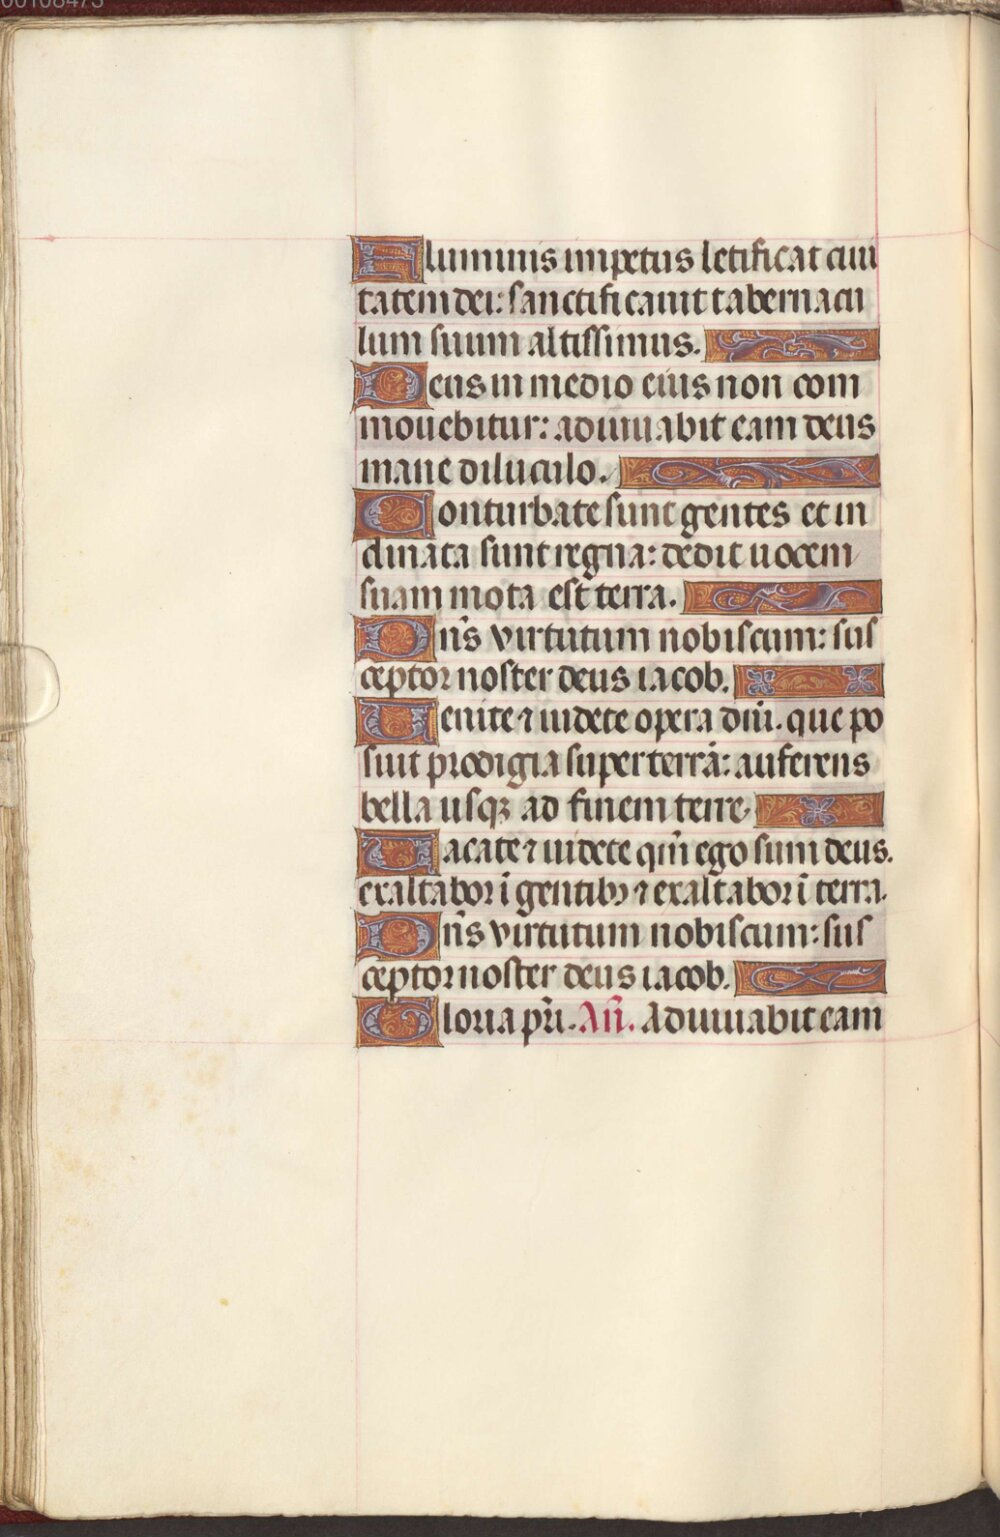 00108473
Fluminis impetus letificat ciui
tatem dei: sanctificauit tabernacu
lum suum altissimus.
Deus in medio eius non com
mouebitur: adiuuabit eam deus
mane diluculo.
Conturbate sunt gentes et in
clinata sunt regna: dedit uocem
suam mota est terra.
Dn̄s virtutum nobiscum: sus
ceptor noster deus iacob.
Uenite ⁊ uidete opera dn̄i. que po
suit prodigia super terrā: auferens
bella usqꝫ ad finem terre.
Uacate ⁊ uidete qm̄ ego sum deus.
exaltabor ī gentibꝫ ⁊ exaltabor ī terra.
Dn̄s virtutum nobiscum: sus
ceptor noster deus iacob.
Gloria pr̄i. Añ. Adiuuabit eam